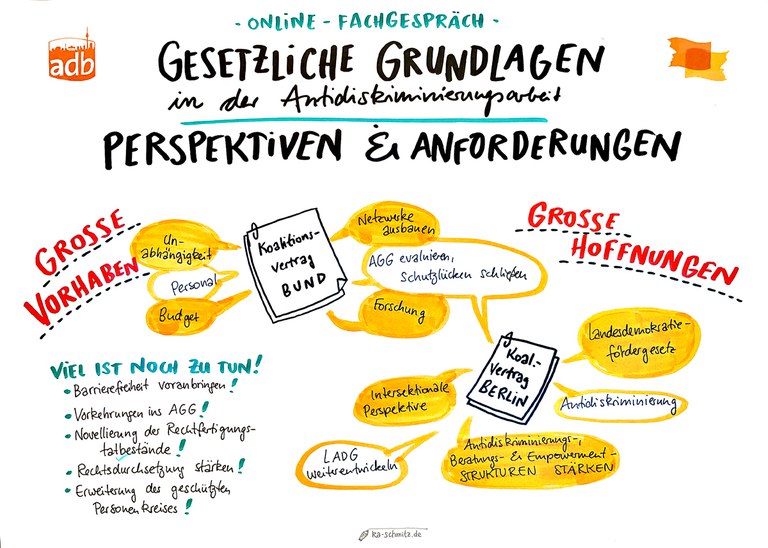 - ONLINE - FACHGESPRÄCH -
adb
GESETZLICHE GRUNDLAGEN
in der Antidiskriminierungsarbeit
PERSPEKTIVEN & ANFORDERUNGEN
GROSSE
VORHABEN
Un-
abhängigkeit
Personal
Budget
Koalitions-
vertrag
BUND
Netzwerke
ausbauen
AGG evaluieren,
Schutzlücken schließen
Forschung
GROSSE
HOFFNUNGEN
VIEL IST NOCH ZU TUN!
• Barrierefreiheit voranbringen!
• Vorkehrungen ins AGG!
• Novellierung der Rechtfertigungs-
tatbestände!
• Rechtsdurchsetzung stärken!
• Erweiterung des geschützten
Personenkreises!
Koal.-
vertrag
BERLIN
Landesdemokratie-
fördergesetz
Antidiskriminierung
Intersektionale
Perspektive
LADG
weiterentwickeln
Antidiskriminierungs-,
Beratungs- & Empowerment-
STRUKTUREN STÄRKEN
ka-schmitz.de